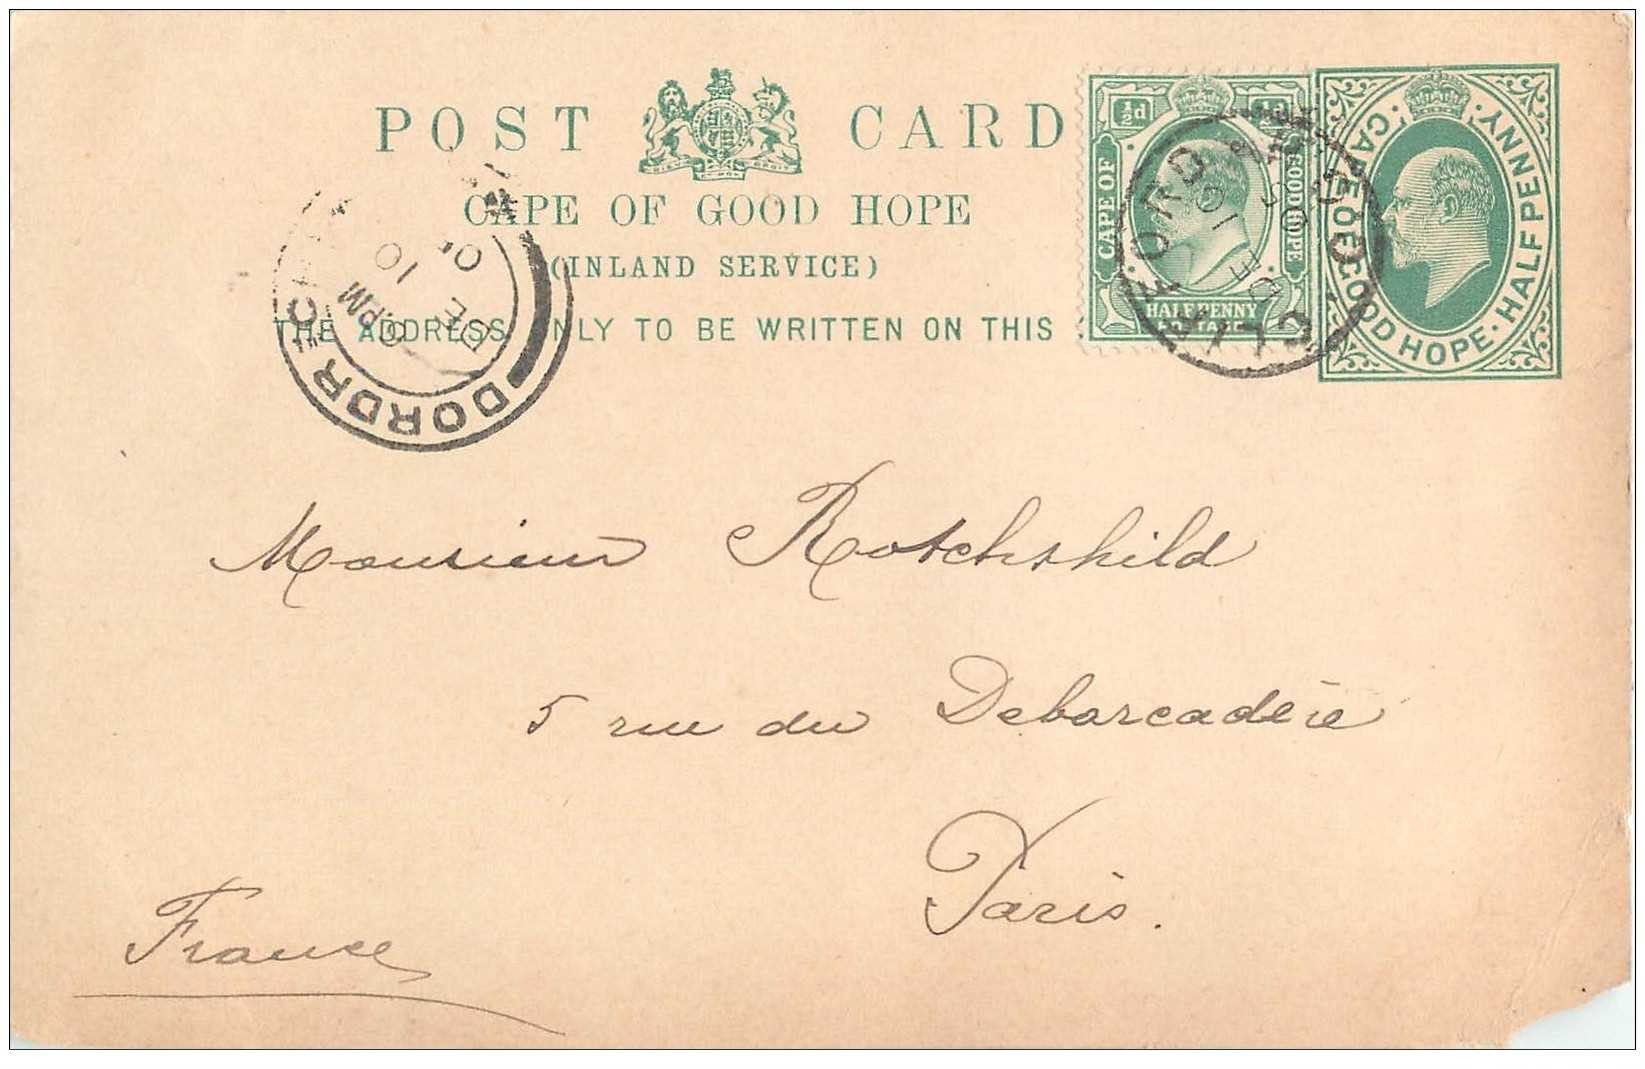 POST CARD
CAPE OF GOOD HOPE
(INLAND SERVICE)
THE ADDRESS ONLY TO BE WRITTEN ON THIS
½d ½d
CAPE OF GOOD HOPE
HALFPENNY
CAPE OF GOOD HOPE · HALF PENNY ·
DORDR EC
PM
DE
10
10
DE
10
Monsieur Rotchshild
5 rue du Debarcadère
Paris.
France